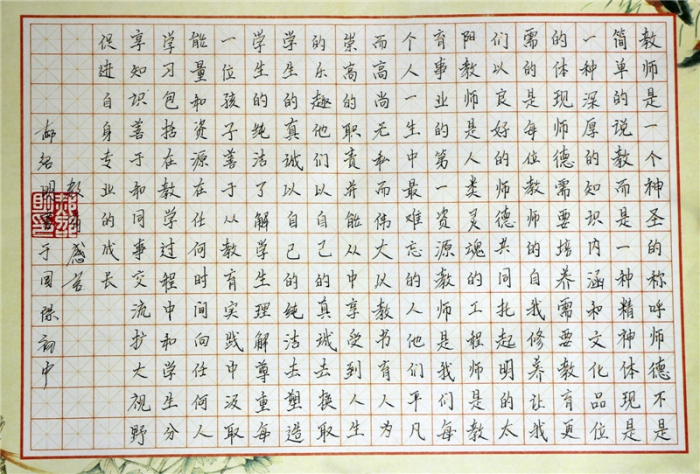 教师是一个神圣的称呼师德不是
简单的说教而是一种精神体现是
一种深厚的知识内涵和文化品位
的体现师德需要培养需要教育更
需的是每位教师的自我修养让我
们以良好的师德共同托起明的太
阳教师是人类灵魂的工程师是教
育事业的第一资源教师是我们每
个人一生中最难忘的人他们平凡
而高尚无私而伟大以教书育人为
崇高的职责并能从中享受到人生
的乐趣他们以自己的真诚去换取
学生的真诚以自己的纯洁去塑造
学生的纯洁了解学生理解尊重每
一位孩子善于以教育实践中汲取
能量和资源在任何时间向任何人
学习包括在教学过程中和学生分
享知识善于和同事交流扩大视野
促进自身专业的成长
教师感言